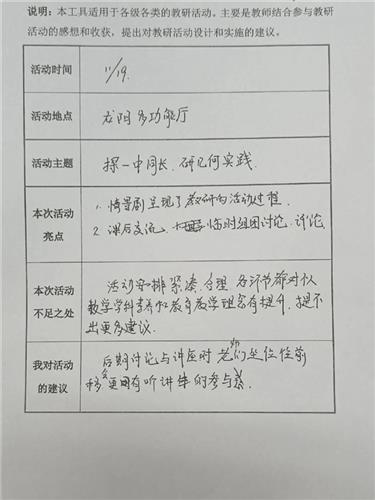 说明：本工具适用于各级各类的教研活动。主要是教师结合参与教研
活动的感想和收获，提出对教研活动设计和实施的建议。
活动时间
11/19.
活动地点
龙阳多功能厅
活动主题
探一中同长，研几何实践.
本次活动
亮点
1. 情景剧呈现了教研内活动过程.
2. 课后交流, 临时组团讨论, 评论.
本次活动
不足之处
活动安排紧凑、合理, 各环节都对从
数学学科素养和教育教学理念有提升, 提不
出更多建议.
我对活动
的建议
后期讨论与讲座时老师们坐位往前
移会更有听讲座的参与感.